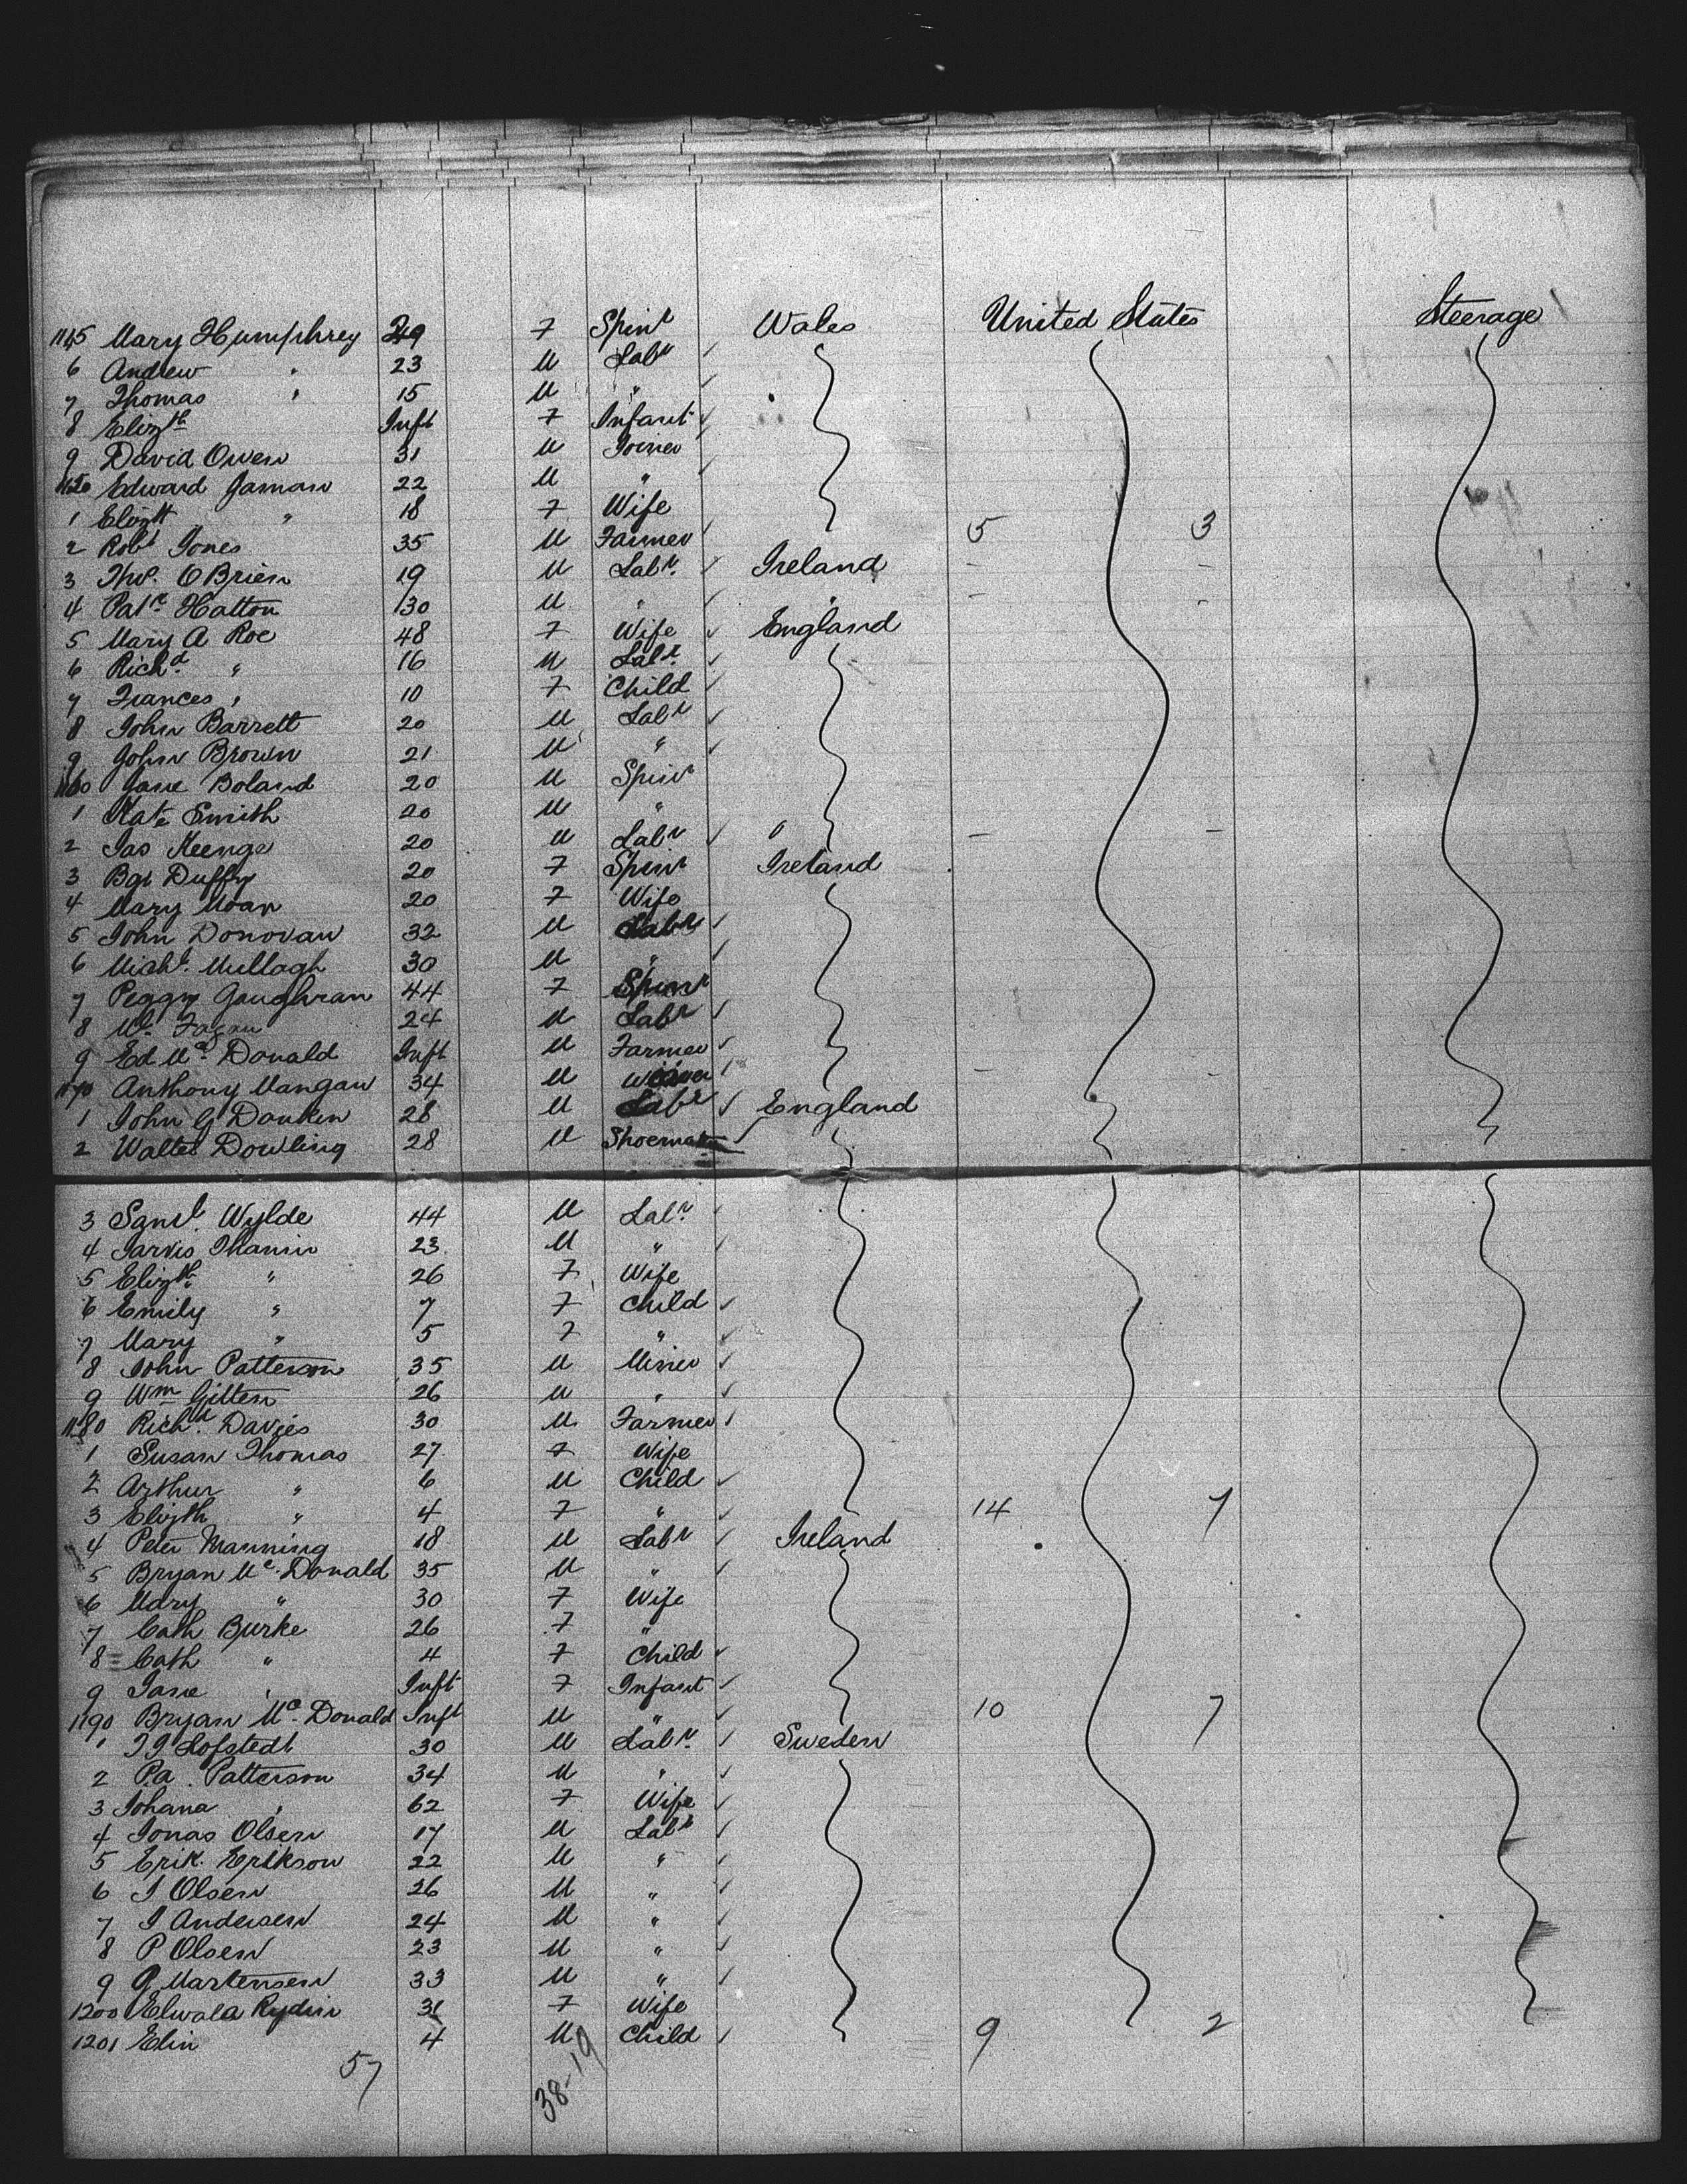 1145 Mary Humphrey 29 F Spinr Wales United States Steerage
6 Andrew " 23 M Labr
7 Thomas " 15 M "
8 Elizth Inft F Infant
9 David Owen 31 M Joiner
1150 Edward Jaman 22 M "
1 Elizth " 18 F Wife
2 Robt Jones 35 M Farmer 5 3
3 Tho. O Brien 19 M Labr. Ireland - -
4 Patk Hatton 30 M " " - -
5 Mary A Roe 48 F Wife England
6 Richd " 16 M Labr.
7 Frances " 10 F Child
8 John Barrett 20 M Labr
9 John Brown 21 M "
1160 Jane Boland 20 M Spinr
1 Kate Smith 20 M "
2 Jas Keenga 20 M Labr - -
3 Bgt Duffy 20 F Spinr Ireland
4 Mary Moan 20 F Wife
5 John Donovan 32 M Labr
6 Michl. Mullagh 30 M "
7 Peggy Gaughran 44 F Spinr
8 Fagan 24 M Labr
9 Ed Mc Donald Inft M Farmer
1170 Anthony Mangan 34 M Weaver - -
1 John G Donkin 28 M Labr England
2 Walter Dowling 28 M Shoemaker
3 Saml. Wylde 44 M Labr.
4 Jarvis 23 M "
5 Elizth " 26 F Wife
6 Emily " 7 F Child
7 Mary " 5 F "
8 John Patterson 35 M Miner
9 Wm Gitten 26 M "
1180 Richd. Davies 30 M Farmer
1 Susan Thomas 27 F Wife
2 Arthur " 6 M Child
3 Elizth " 4 F " 14 7
4 Peter Manning 18 M Labr Ireland
5 Bryan Mc Donald 35 M "
6 Mary " 30 F Wife
7 Cath Burke 26 F "
8 Cath " 4 F Child
9 Jane " Inft F Infant
1190 Bryan Mc Donald Inft M " 10 7
1 Lofstedt 30 M Labr. Sweden
2 P.a. Patterson 34 M "
3 Johana " 62 F Wife
4 Jonas Olsen 17 M Labr
5 Erik Erikson 22 M "
6 J Olsen 26 M "
7 J Andersen 24 M "
8 P Olsen 23 M "
9 P Martensen 33 M "
1200 Elwala Rydin 31 F Wife
1201 Elin 4 M Child 9 2
57 38-19